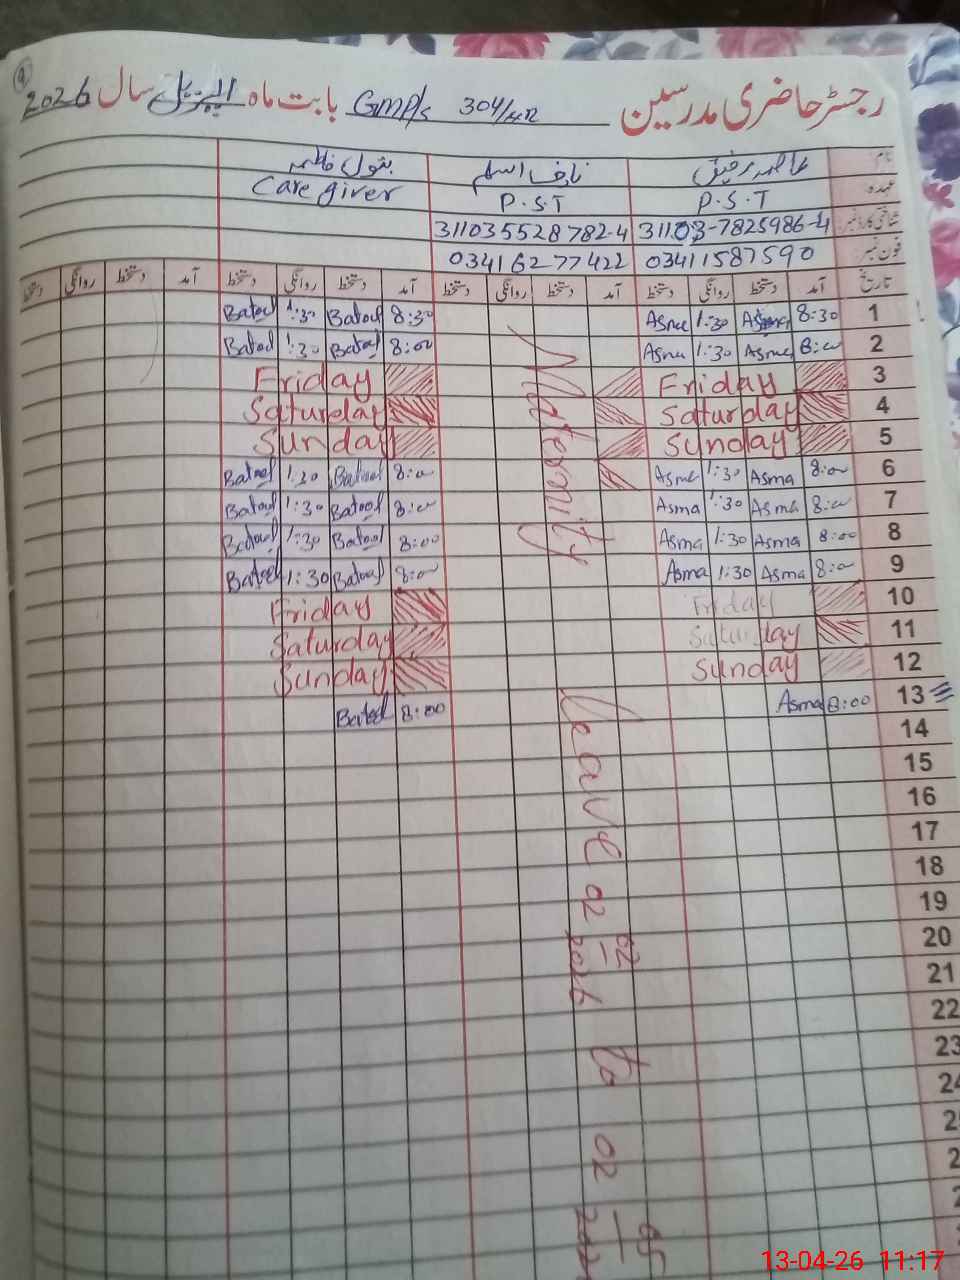 رجسٹر حاضری مدرسین GMP/s 304/4R بابت ماہ اپریل سال 2026
نام عاصمہ رفیق نازف اسلم بتول فاطمہ
عہدہ P.S.T P.S.T Care giver
شناختی کارڈ نمبر 31103-7825986-4 311035528782-4
فون نمبر 03411587590 03416277422
تاریخ آمد دستخط روانگی دستخط آمد دستخط روانگی دستخط آمد دستخط روانگی دستخط آمد دستخط روانگی دستخط
1 8:30 Asma 1:30 Asma 8:30 Batool 1:30 Batool
2 8:00 Asma 1:30 Asma 8:00 Batool 1:30 Batool
3 Friday Friday
4 Saturday Saturday
5 Sunday Sunday
6 8:00 Asma 1:30 Asma 8:00 Batool 1:30 Batool
7 8:00 Asma 1:30 Asma 8:00 Batool 1:30 Batool
8 8:00 Asma 1:30 Asma 8:00 Batool 1:30 Batool
9 8:00 Asma 1:30 Asma 8:00 Batool 1:30 Batool
10 Friday Friday
11 Saturday Saturday
12 Sunday Sunday
13 8:00 Asma 8:00 Batool
14
15
16
17
18
19
20
21
22
23
24
Maternity leave 02 02 2026 to 02 05
13-04-26 11:17